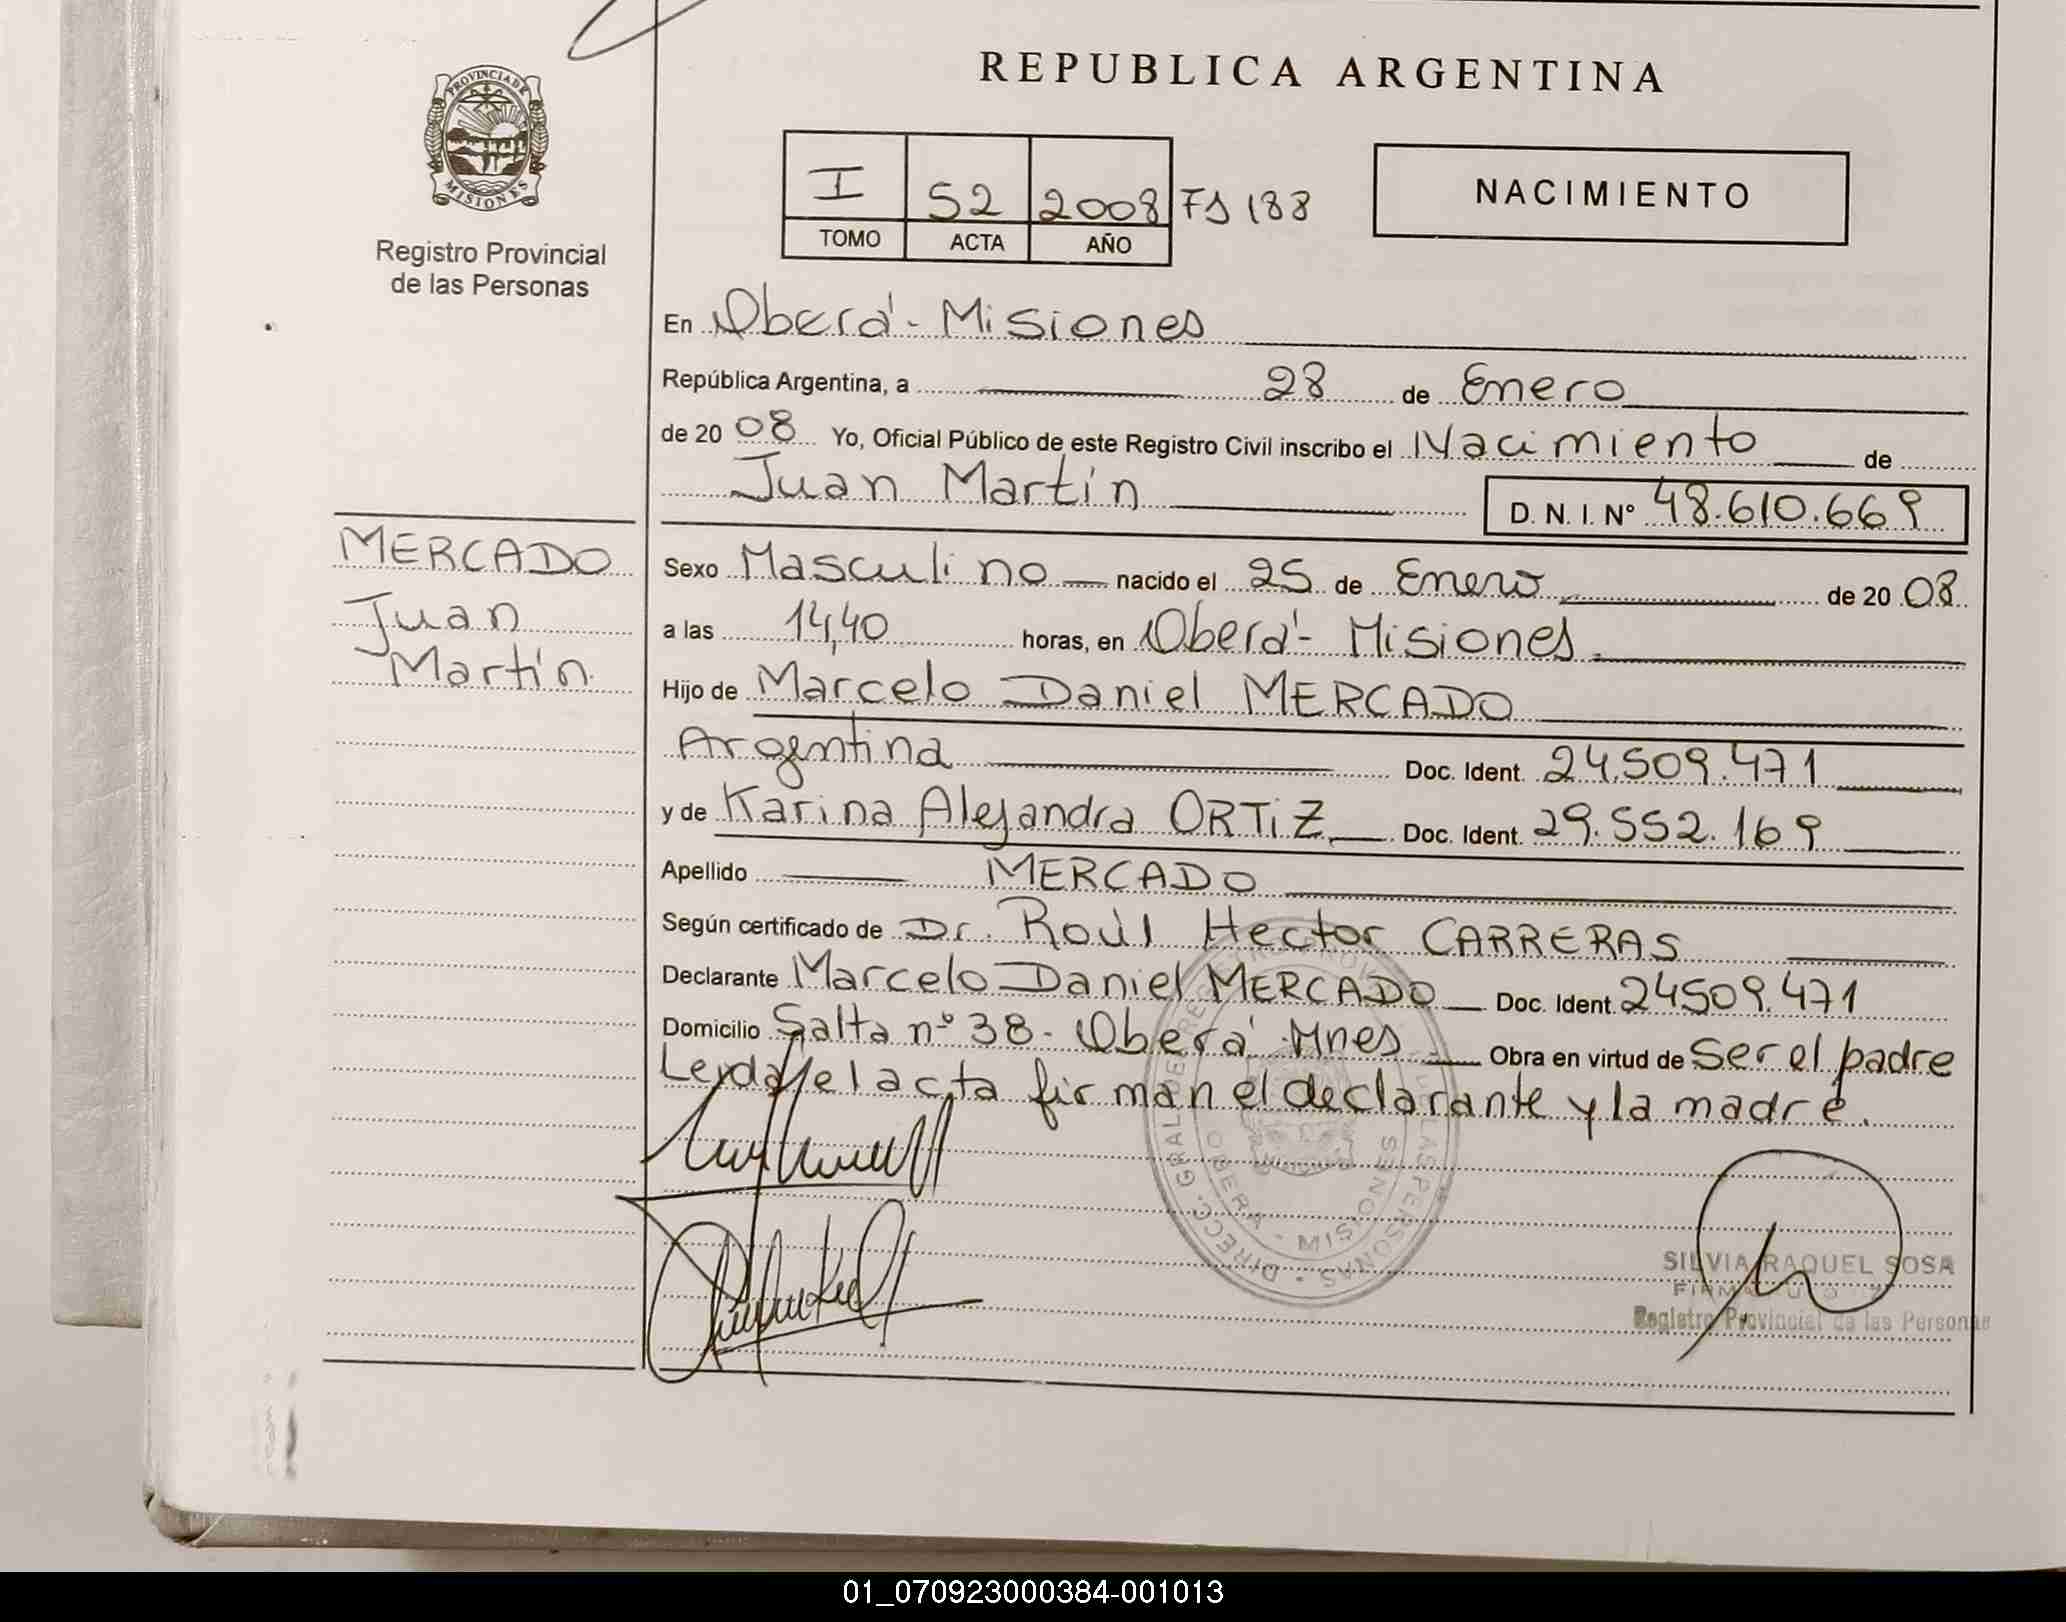 REPUBLICA ARGENTINA
PROVINCIA DE MISIONES
Registro Provincial
de las Personas
I 52 2008 Fs 188
TOMO ACTA AÑO
NACIMIENTO
En Oberá - Misiones
República Argentina, a 28 de Enero
de 20 08 Yo, Oficial Público de este Registro Civil inscribo el Nacimiento de
Juan Martín D. N. I. Nº 48.610.669
MERCADO
Juan
Martín.
Sexo Masculino nacido el 25 de Enero de 20 08
a las 14,40 horas, en Oberá - Misiones.
Hijo de Marcelo Daniel MERCADO
Argentina Doc. Ident. 24.509.471
y de Karina Alejandra ORTIZ Doc. Ident. 29.552.169
Apellido MERCADO
Según certificado de Dr. Roúl Hector CARRERAS
Declarante Marcelo Daniel MERCADO Doc. Ident. 24509.471
Domicilio Salta nº 38 - Oberá Mnes Obra en virtud de Ser el padre
Leida el acta firman el declarante y la madre.
DIRECC. GRAL. DE REG. PROV. DE LAS PERSONAS
OBERA - MISIONES
SILVIA RAQUEL SOSA
Registro Provincial de las Personas
01_070923000384-001013